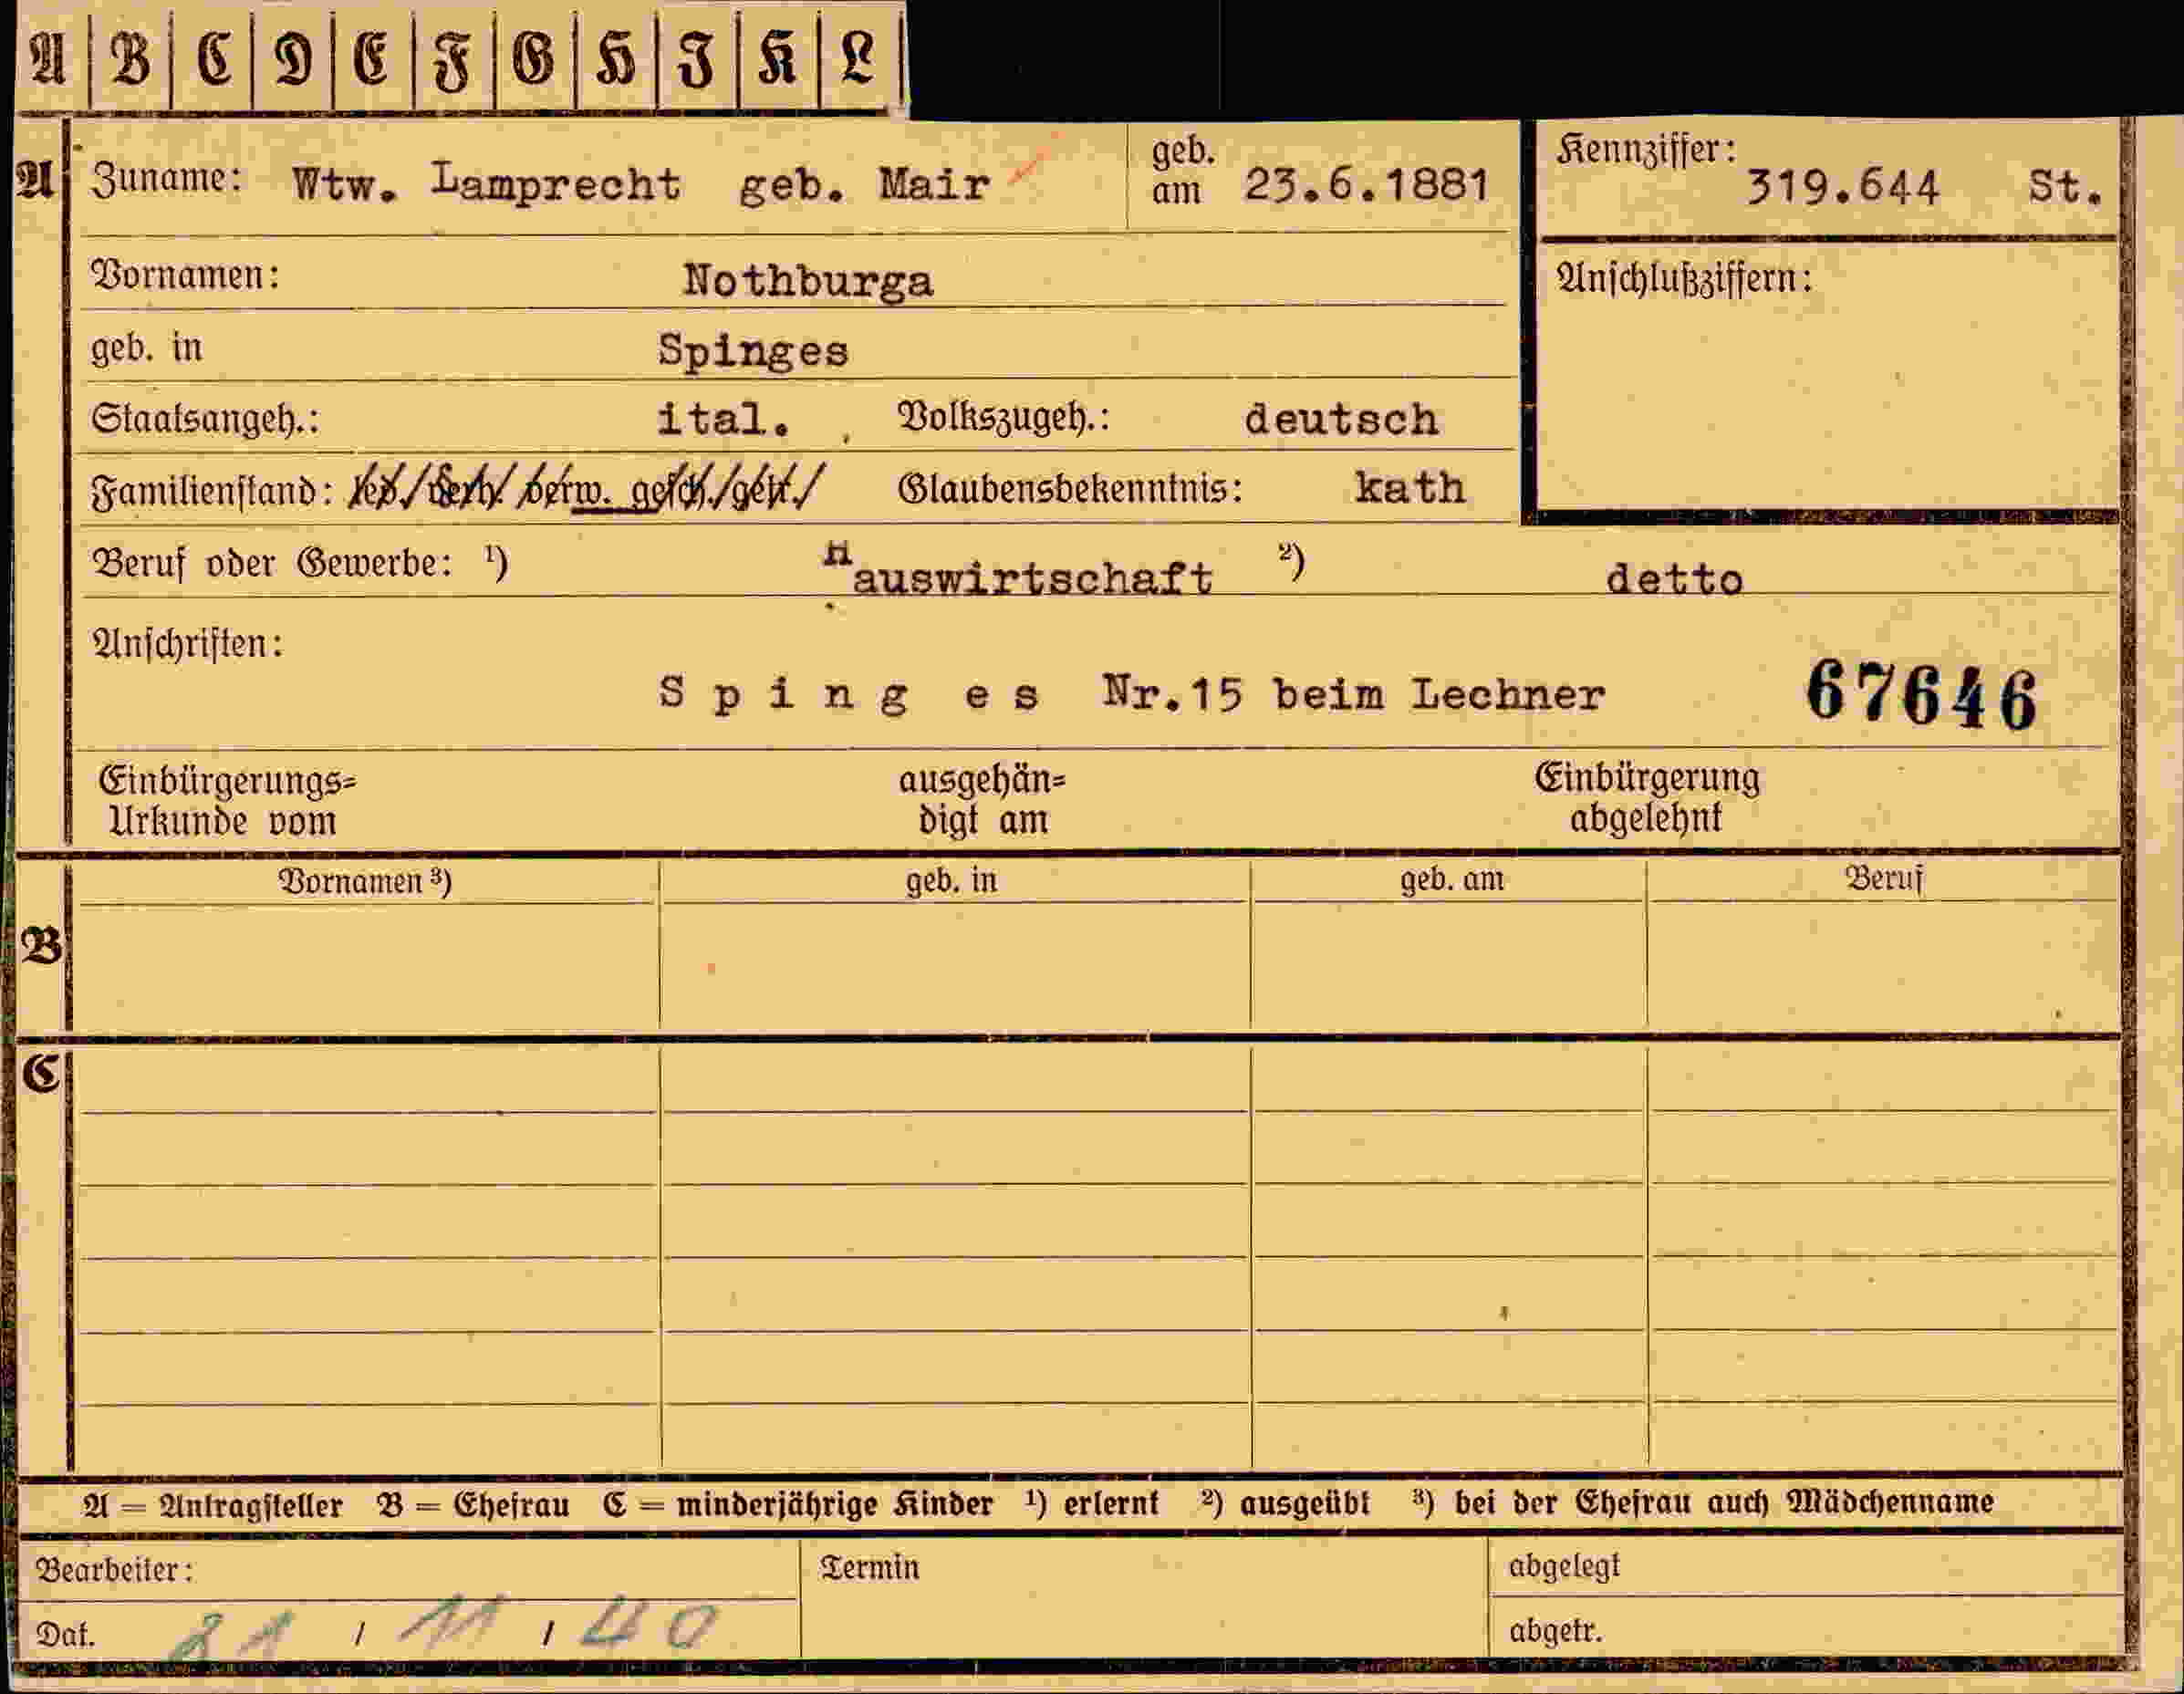 A B C D E F G H I K L
A Zuname: Wtw. Lamprecht geb. Mair geb. am 23.6.1881 Kennziffer: 319.644 St.
Vornamen: Nothburga Anschlußziffern:
geb. in Spinges
Staatsangeh.: ital. Volkszugeh.: deutsch
Familienstand: led./verh./verw. gesch./getr./ Glaubensbekenntnis: kath
Beruf oder Gewerbe: ¹) Hauswirtschaft ²) detto
Anschriften:
S p i n g e s Nr.15 beim Lechner 67646
Einbürgerungs= ausgehän= Einbürgerung
Urkunde vom digt am abgelehnt
Vornamen ³) geb. in geb. am Beruf
B
C
A = Antragsteller B = Ehefrau C = minderjährige Kinder ¹) erlernt ²) ausgeübt ³) bei der Ehefrau auch Mädchenname
Bearbeiter: Termin abgelegt
Dat. 21 / 11 / 40 abgetr.